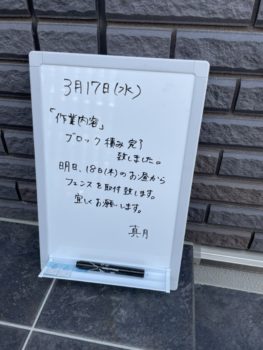 3月17日(水)
「作業内容」
ブロック積み完了
致しました。
明日、18日(木)のお昼から
フェンスを取付致します。
宜しくお願いします。
真月